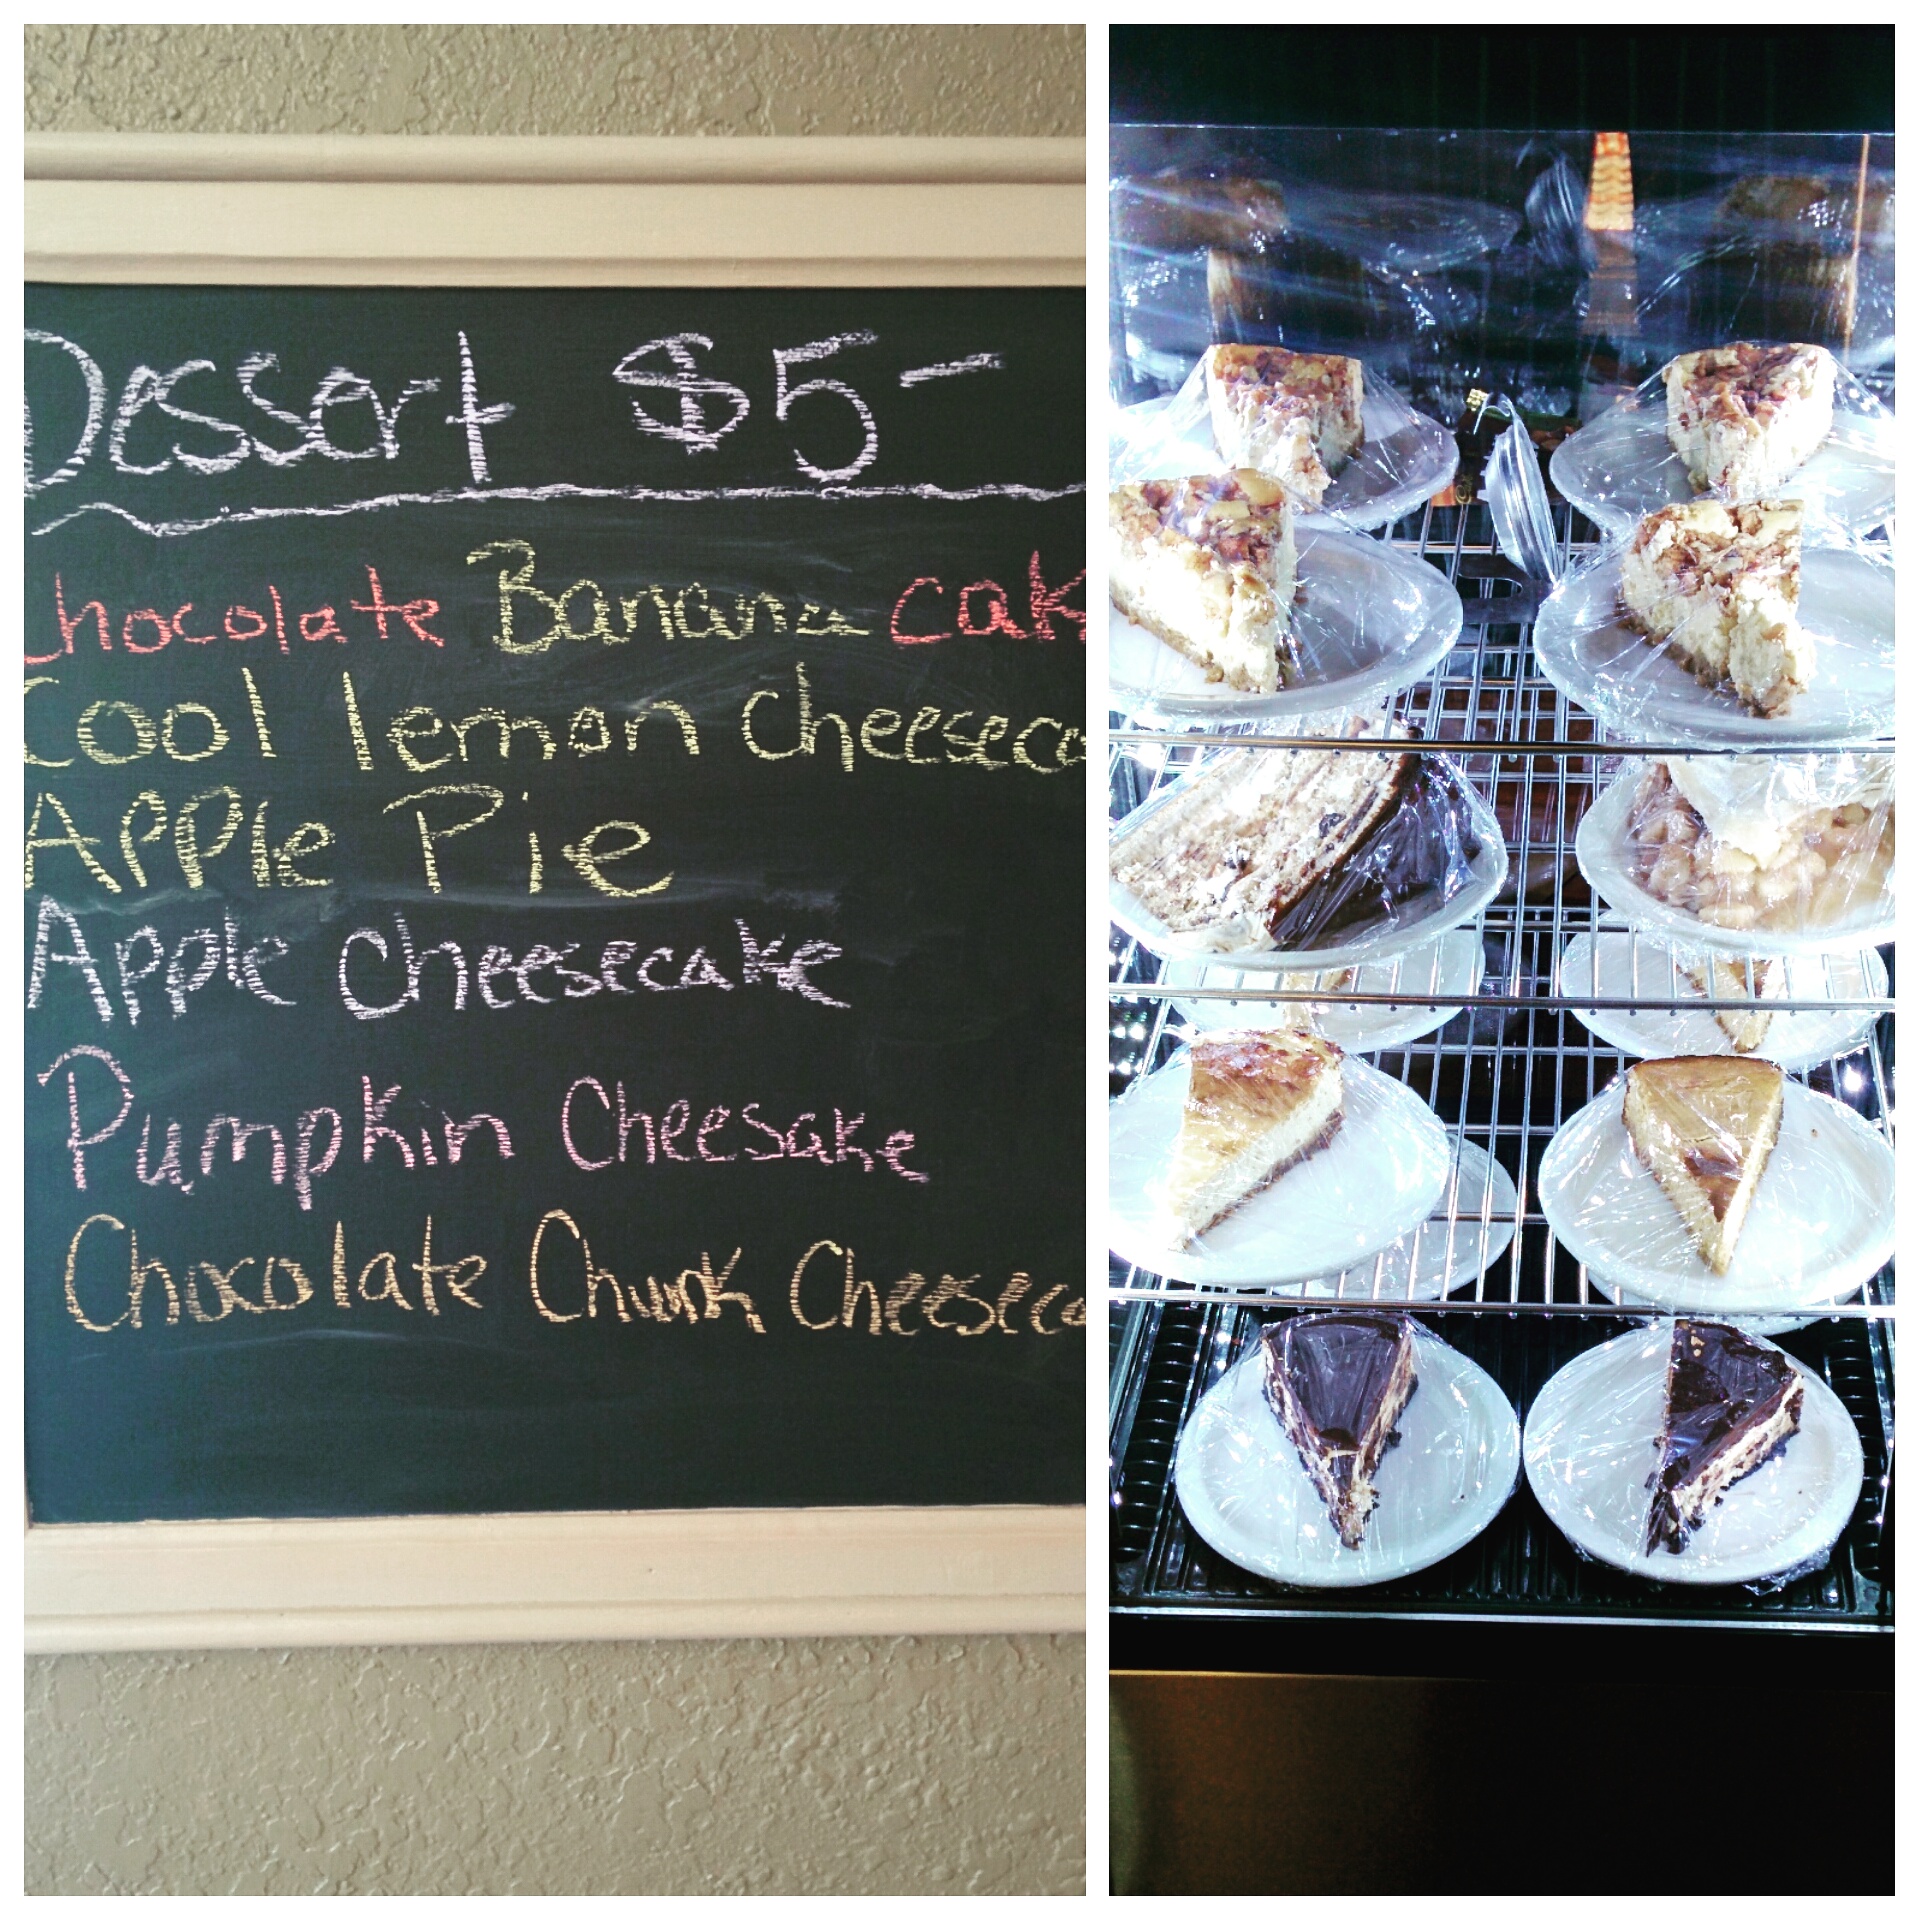 Dessert $5-
Chocolate Banana cak
Cool lemon cheeseca
Apple Pie
Apple cheesecake
Pumpkin Cheesake
Chocolate Chunk Cheeseca